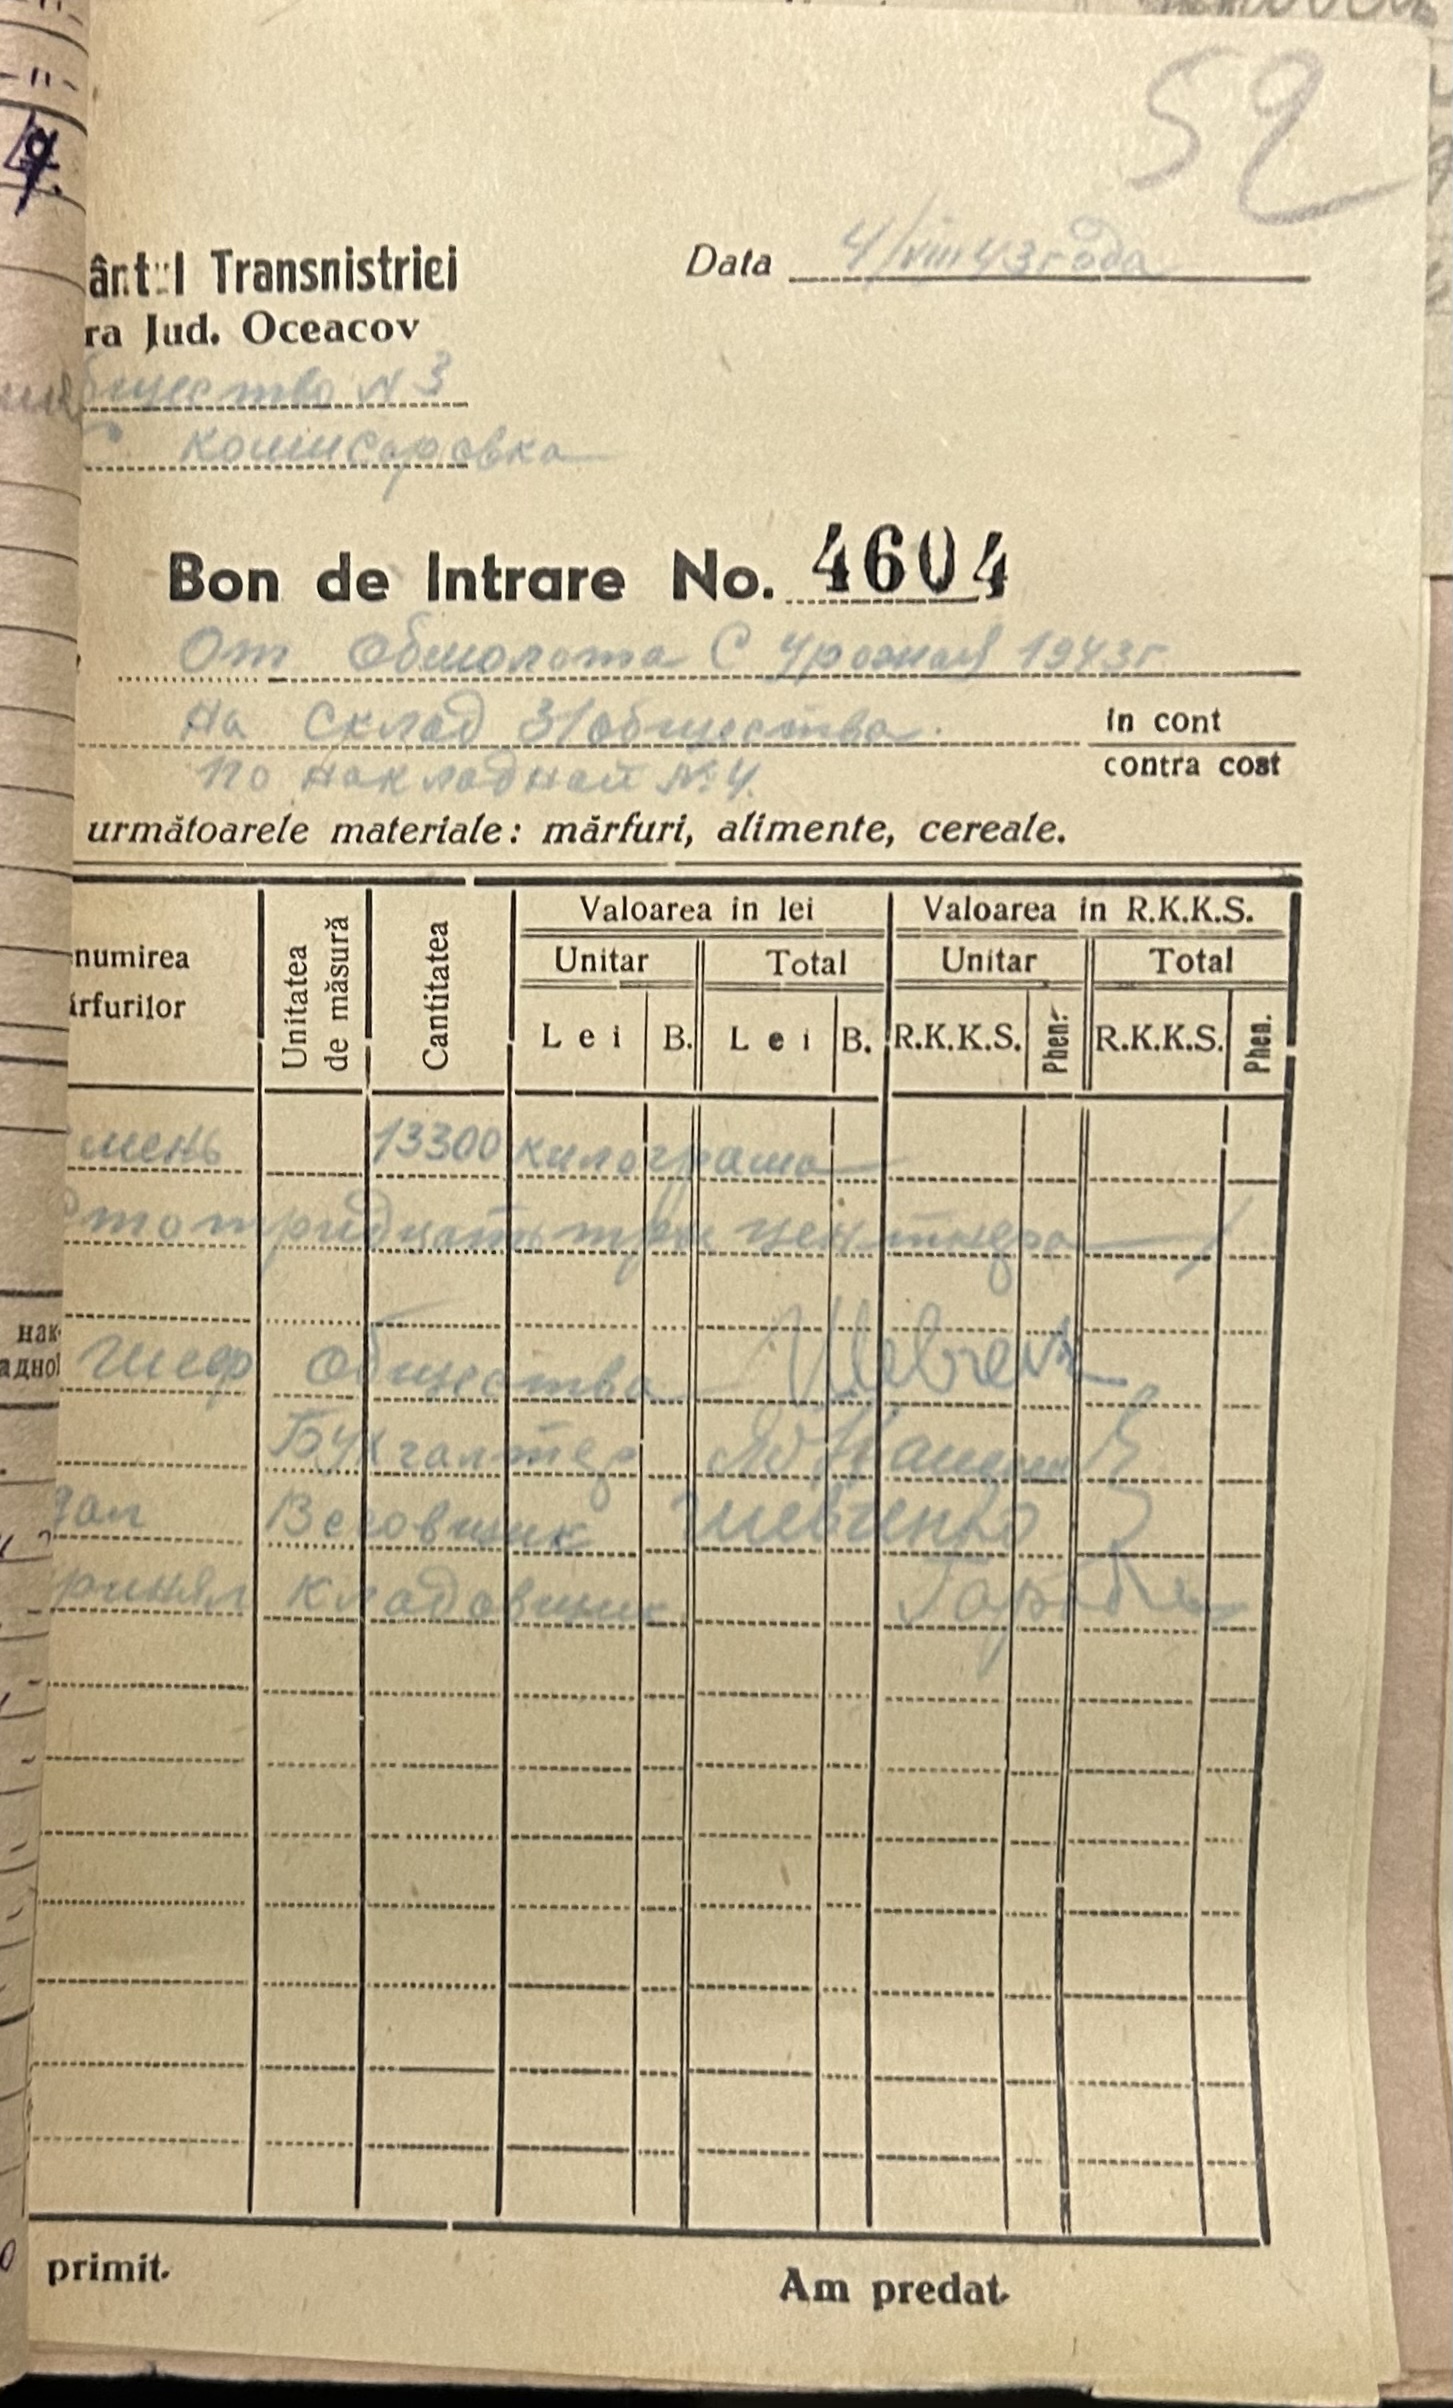 52
ântul Transnistriei
Data 4/VIII 43 года
ra Jud. Oceacov
бщество N 3
комисаровка
Bon de Intrare No. 4604
От обмолота С Урожая 1943 г
на Склад 31 общества.
in cont
contra cost
по накладной №4.
următoarele materiale: mărfuri, alimente, cereale.
numirea
ărfurilor
Unitatea
de măsură
Cantitatea
Valoarea in lei
Valoarea in R.K.K.S.
Unitar Total Unitar Total
Lei B. Lei B. R.K.K.S. Phen. R.K.K.S. Phen.
мень 13300 килограма
Сто тридцать три центнера
нак
адной
Шеф общества
Бухгалтер
дал Весовщик Шевченко
ринял кладовщик
primit.
Am predat.